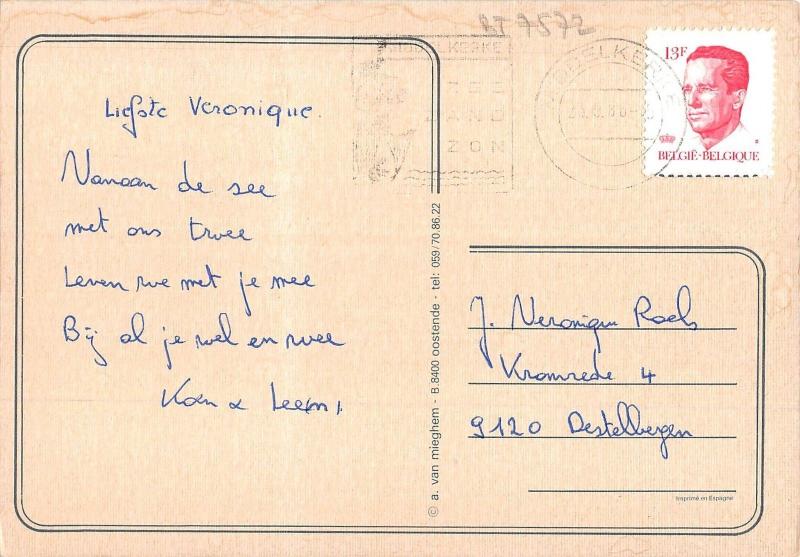 BT 7572
Liefste Veronique.
Vanaan de see
met ons twee
Leven we met je mee
Bij al je wel en wee
Koen &
KERKE
ZEE
ZAND
ZON
13F
BELGIË·BELGIQUE
© a. van mieghem - B.8400 oostende - tel: 059/70.86.22
J. Veronique Roels
Kromrede 4
9120 Destelbergen
Imprimé en Espagne